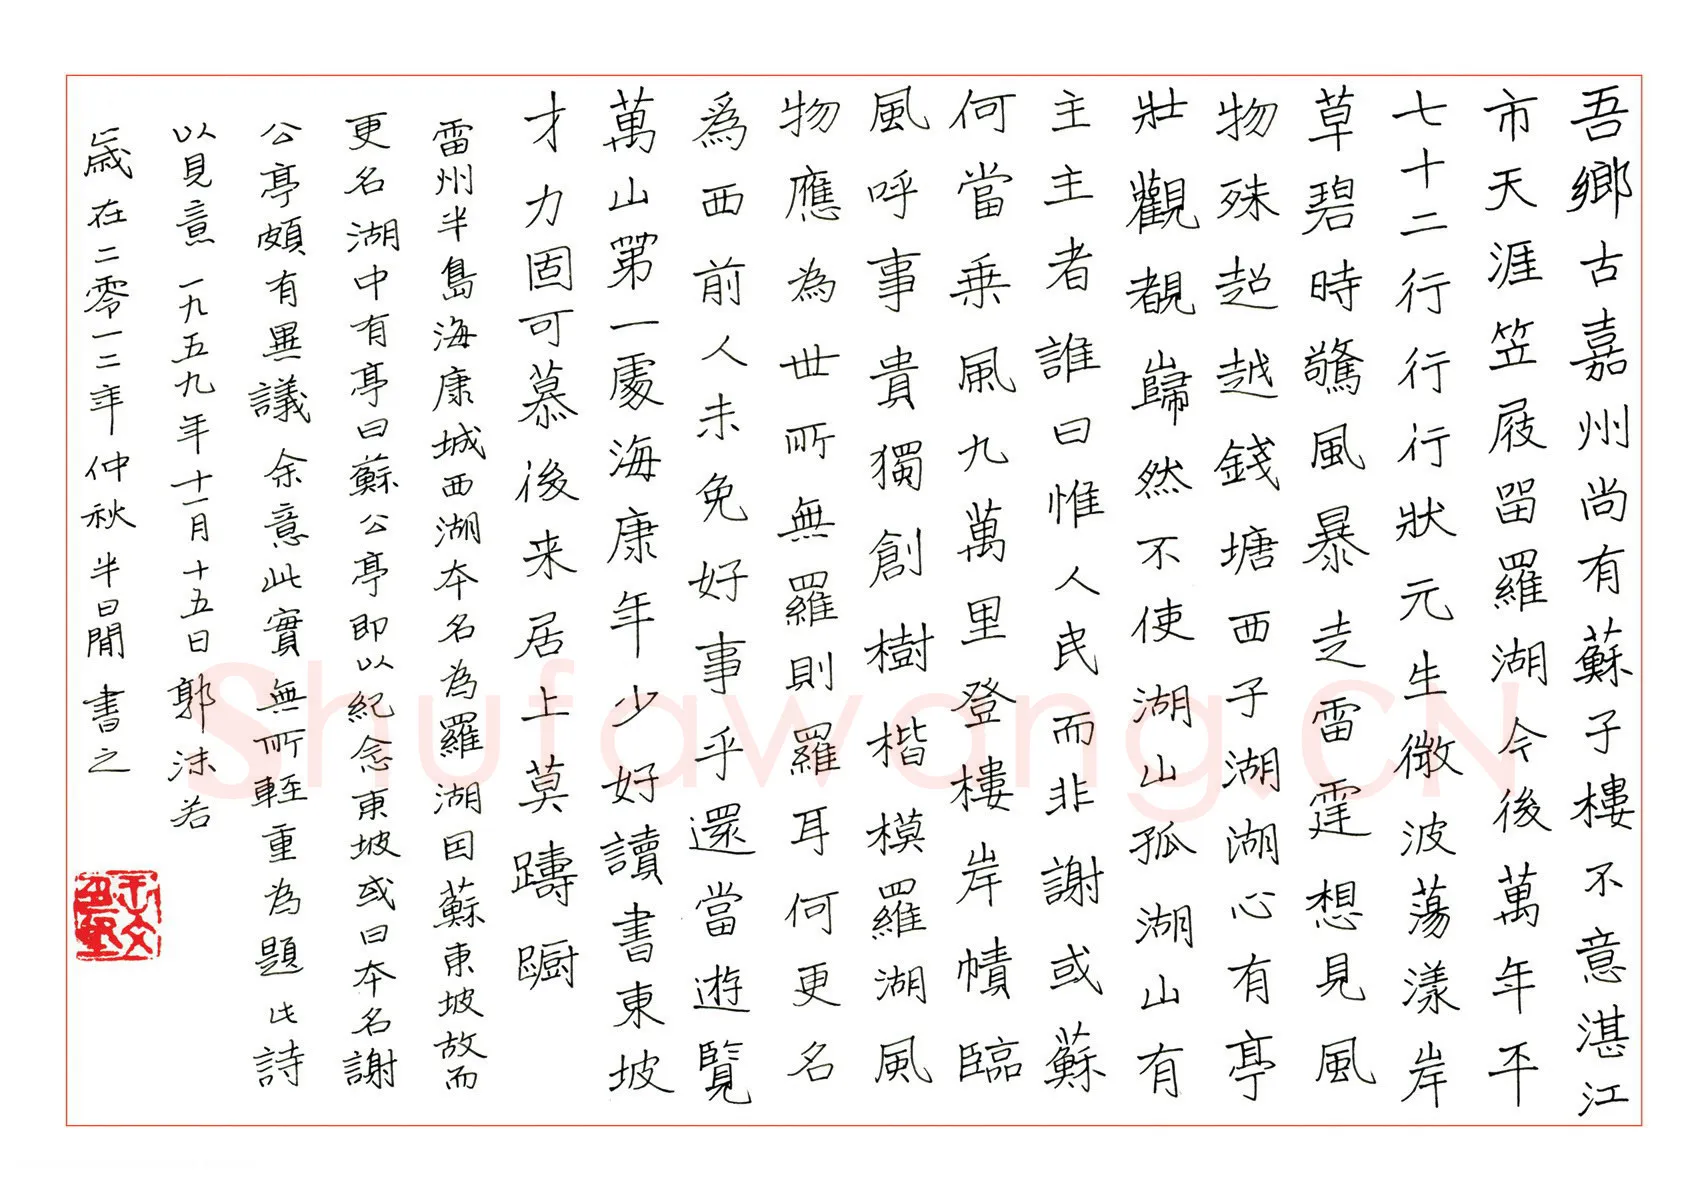 吾鄉古嘉州尚有蘇子樓不意湛江
市天涯笠屐留羅湖今後萬年平
七十二行行行狀元生微波蕩漾岸
草碧時驚風暴走雷霆想見風
物殊超越錢塘西子湖湖心有亭
壯觀覩歸然不使湖山孤湖山有
主主者誰曰惟人民而非謝或蘇
何當乘風九萬里登樓岸幘臨
風呼事貴獨創樹楷模羅湖風
物應為世所無羅則羅耳何更名
爲西前人未免好事乎還當遊覽
萬山第一處海康年少好讀書東坡
才力固可慕後来居上莫躊躕
雷州半島海康城西湖本名為羅湖因蘇東坡故而
更名湖中有亭曰蘇公亭即以紀念東坡或曰本名謝
公亭頗有異議余意此實無所輕重為題此詩
以見意一九五九年十一月十五日郭沫若
歲在二零一二年仲秋半日閒書之
Shufawang.CN